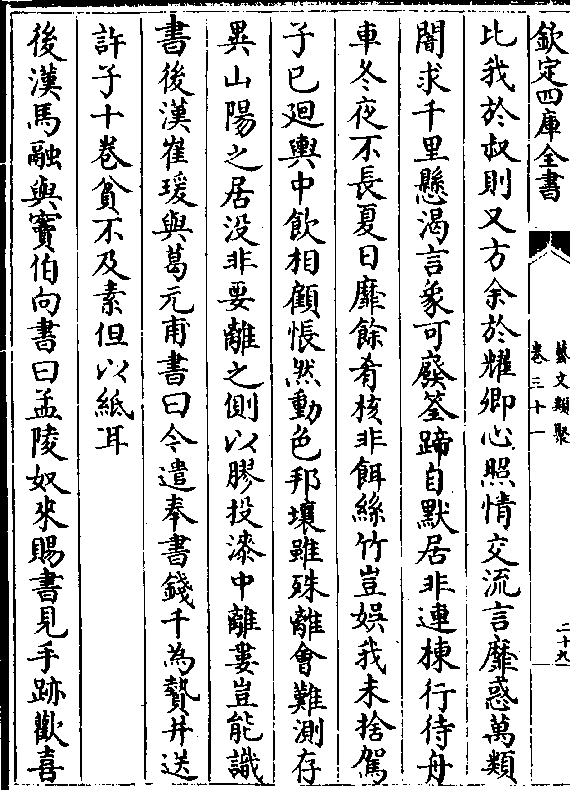 欽定四庫全書
藝文類聚
卷三十一
二十九
比我於叔則又方余於耀卿心照情交流言靡惑萬類
闇求千里懸渴言象可廢筌蹄自默居非連棟行待舟
車冬夜不長夏日靡餘肴核非餌絲竹豈娛我未捨駕
子已廻輿中飲相顧悵然動色邦壤雖殊離會難測存
異山陽之居没非要離之側以膠投漆中離婁豈能識
書後漢崔瑗與葛元甫書曰今遣奉書錢千為贄并送
許子十卷貧不及素但以紙耳
後漢馬融與竇伯向書曰孟陵奴來賜書見手跡歡喜